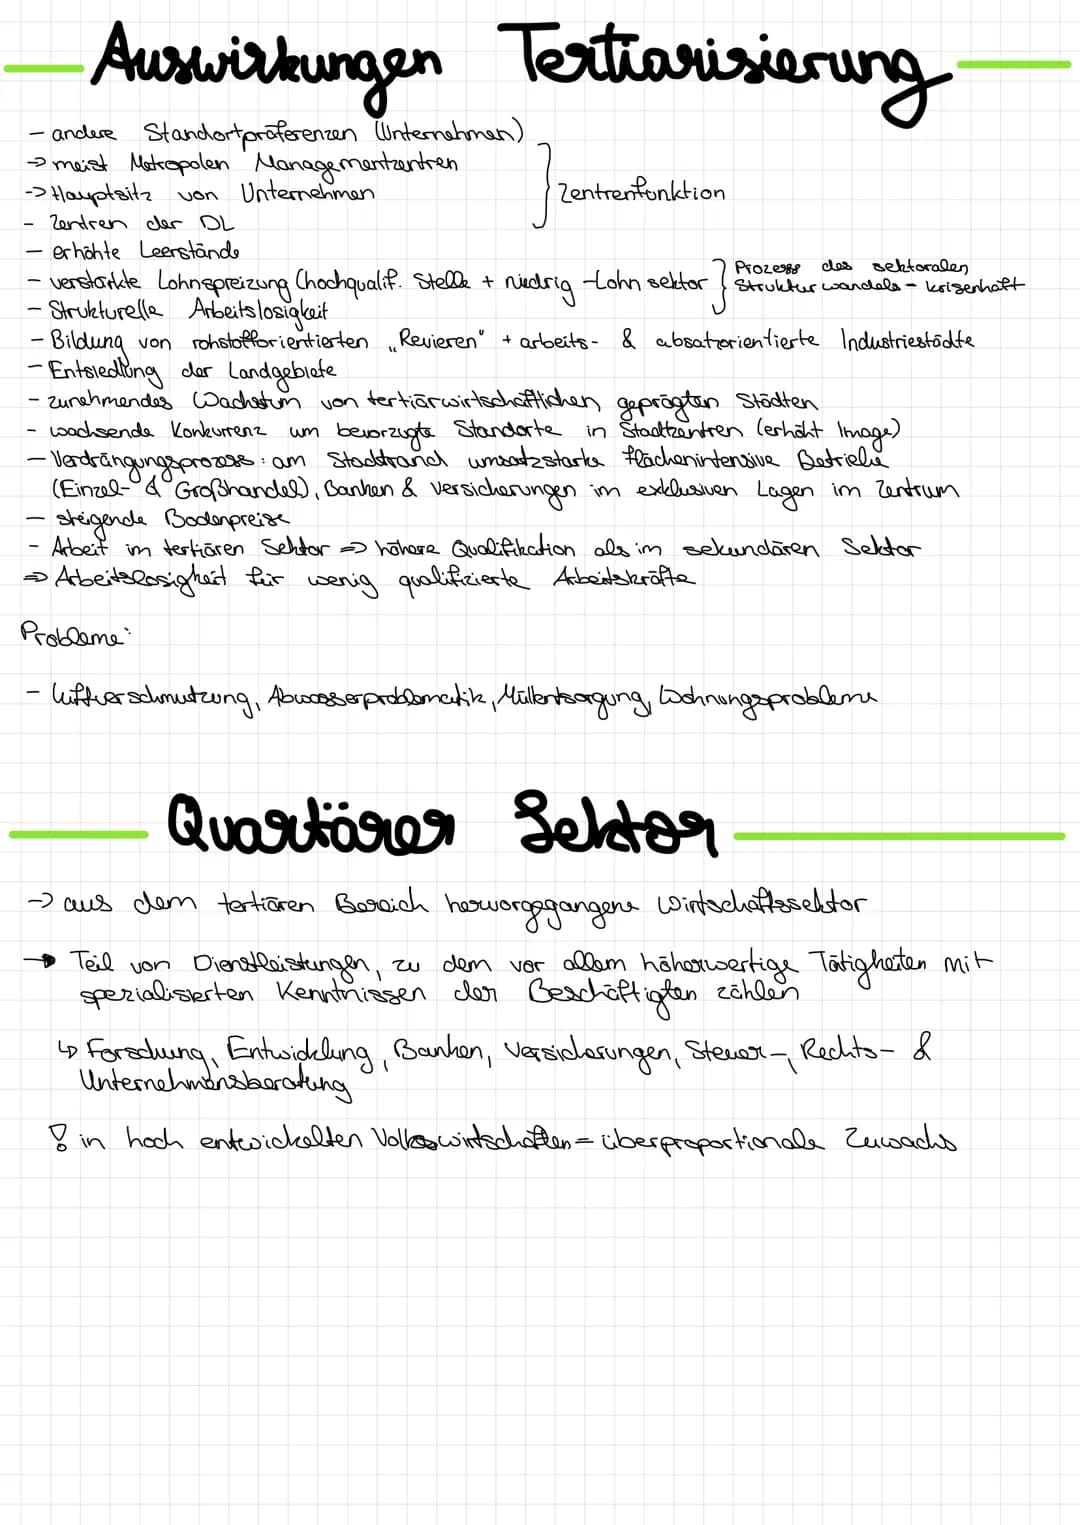 Auswirkungen Tertiarisierung
- andere Standortpräferenzen (Unternehmen)
-> meist Metropolen Managementzentren
-> Hauptsitz von Unternehmen
Zentrenfunktion
- Zentren der DL
- erhöhte Leerstände
- verstärkte Lohnspreizung (hochqualif. Stelle + niedrig-Lohn sektor
Prozess des sektoralen
Strukturwandels - krisenhaft
- Strukturelle Arbeitslosigkeit
- Bildung von rohstofforientierten „Revieren" + arbeits- & absatzorientierte Industriestädte
- Entsiedlung der Landgebiete
- zunehmendes Wachstum von tertiärwirtschaftlichen geprägten Städten
- wachsende Konkurrenz um bevorzugte Standorte in Stadtzentren (erhöht Image)
- Verdrängungsprozess: am Stadtrand umsatzstarke flächenintensive Betriebe
(Einzel- & Großhandel), Banken & Versicherungen im exklusiven Lagen im Zentrum
- steigende Bodenpreise
- Arbeit im tertiären Sektor => höhere Qualifikation als im sekundären Sektor
=> Arbeitslosigkeit für wenig qualifizierte Arbeitskräfte
Probleme:
- Luftverschmutzung, Abwasserproblematik, Müllentsorgung, Wohnungsprobleme
Quartärer Sektor
-> aus dem tertiären Bereich hervorgegangene Wirtschaftssektor
-> Teil von Dienstleistungen, zu dem vor allem höherwertige Tätigkeiten mit
spezialisierten Kenntnissen der Beschäftigten zählen
↳ Forschung, Entwicklung, Banken, Versicherungen, Steuer-, Rechts- &
Unternehmensberatung
! in hoch entwickelten Volkswirtschaften = überproportionale Zuwachs